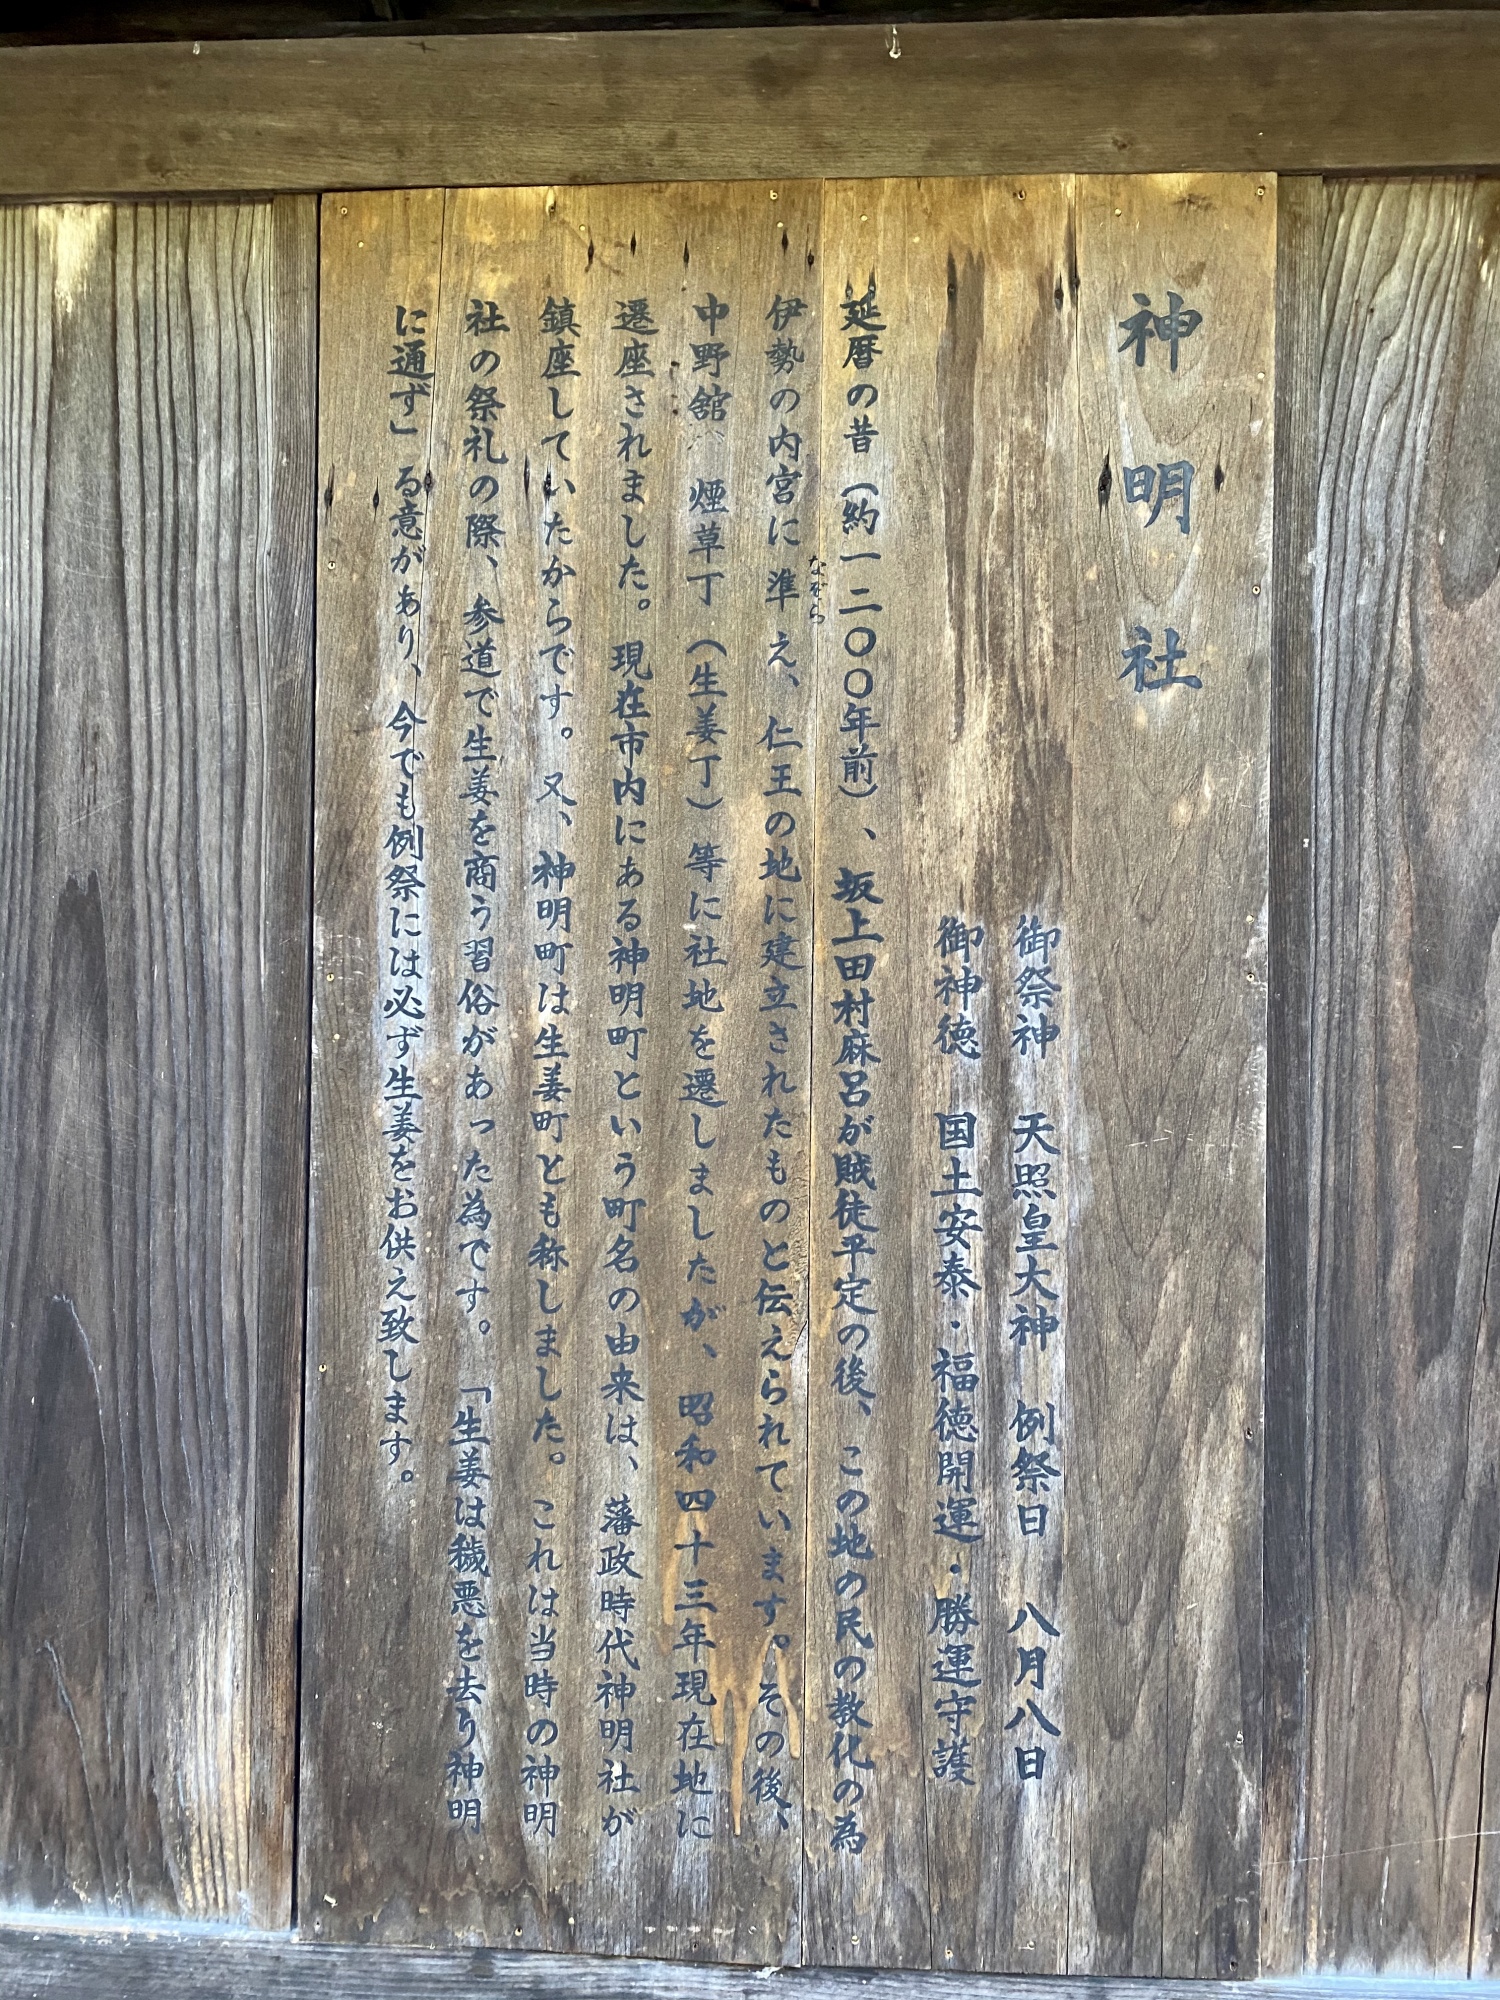 神明社
御祭神　天照皇大神　例祭日　八月八日
御神徳　国土安泰・福徳開運・勝運守護
延暦の昔（約一二〇〇年前）、坂上田村麻呂が賊徒平定の後、この地の民の教化の為
伊勢の内宮に準え、仁王の地に建立されたものと伝えられています。その後、
なぞら
中野舘　煙草丁（生姜丁）等に社地を遷しましたが、昭和四十三年現在地に
遷座されました。現在市内にある神明町という町名の由来は、藩政時代神明社が
鎮座していたからです。又、神明町は生姜町とも称しました。これは当時の神明
社の祭礼の際、参道で生姜を商う習俗があった為です。「生姜は穢悪を去り神明
に通ず」る意があり、今でも例祭には必ず生姜をお供え致します。